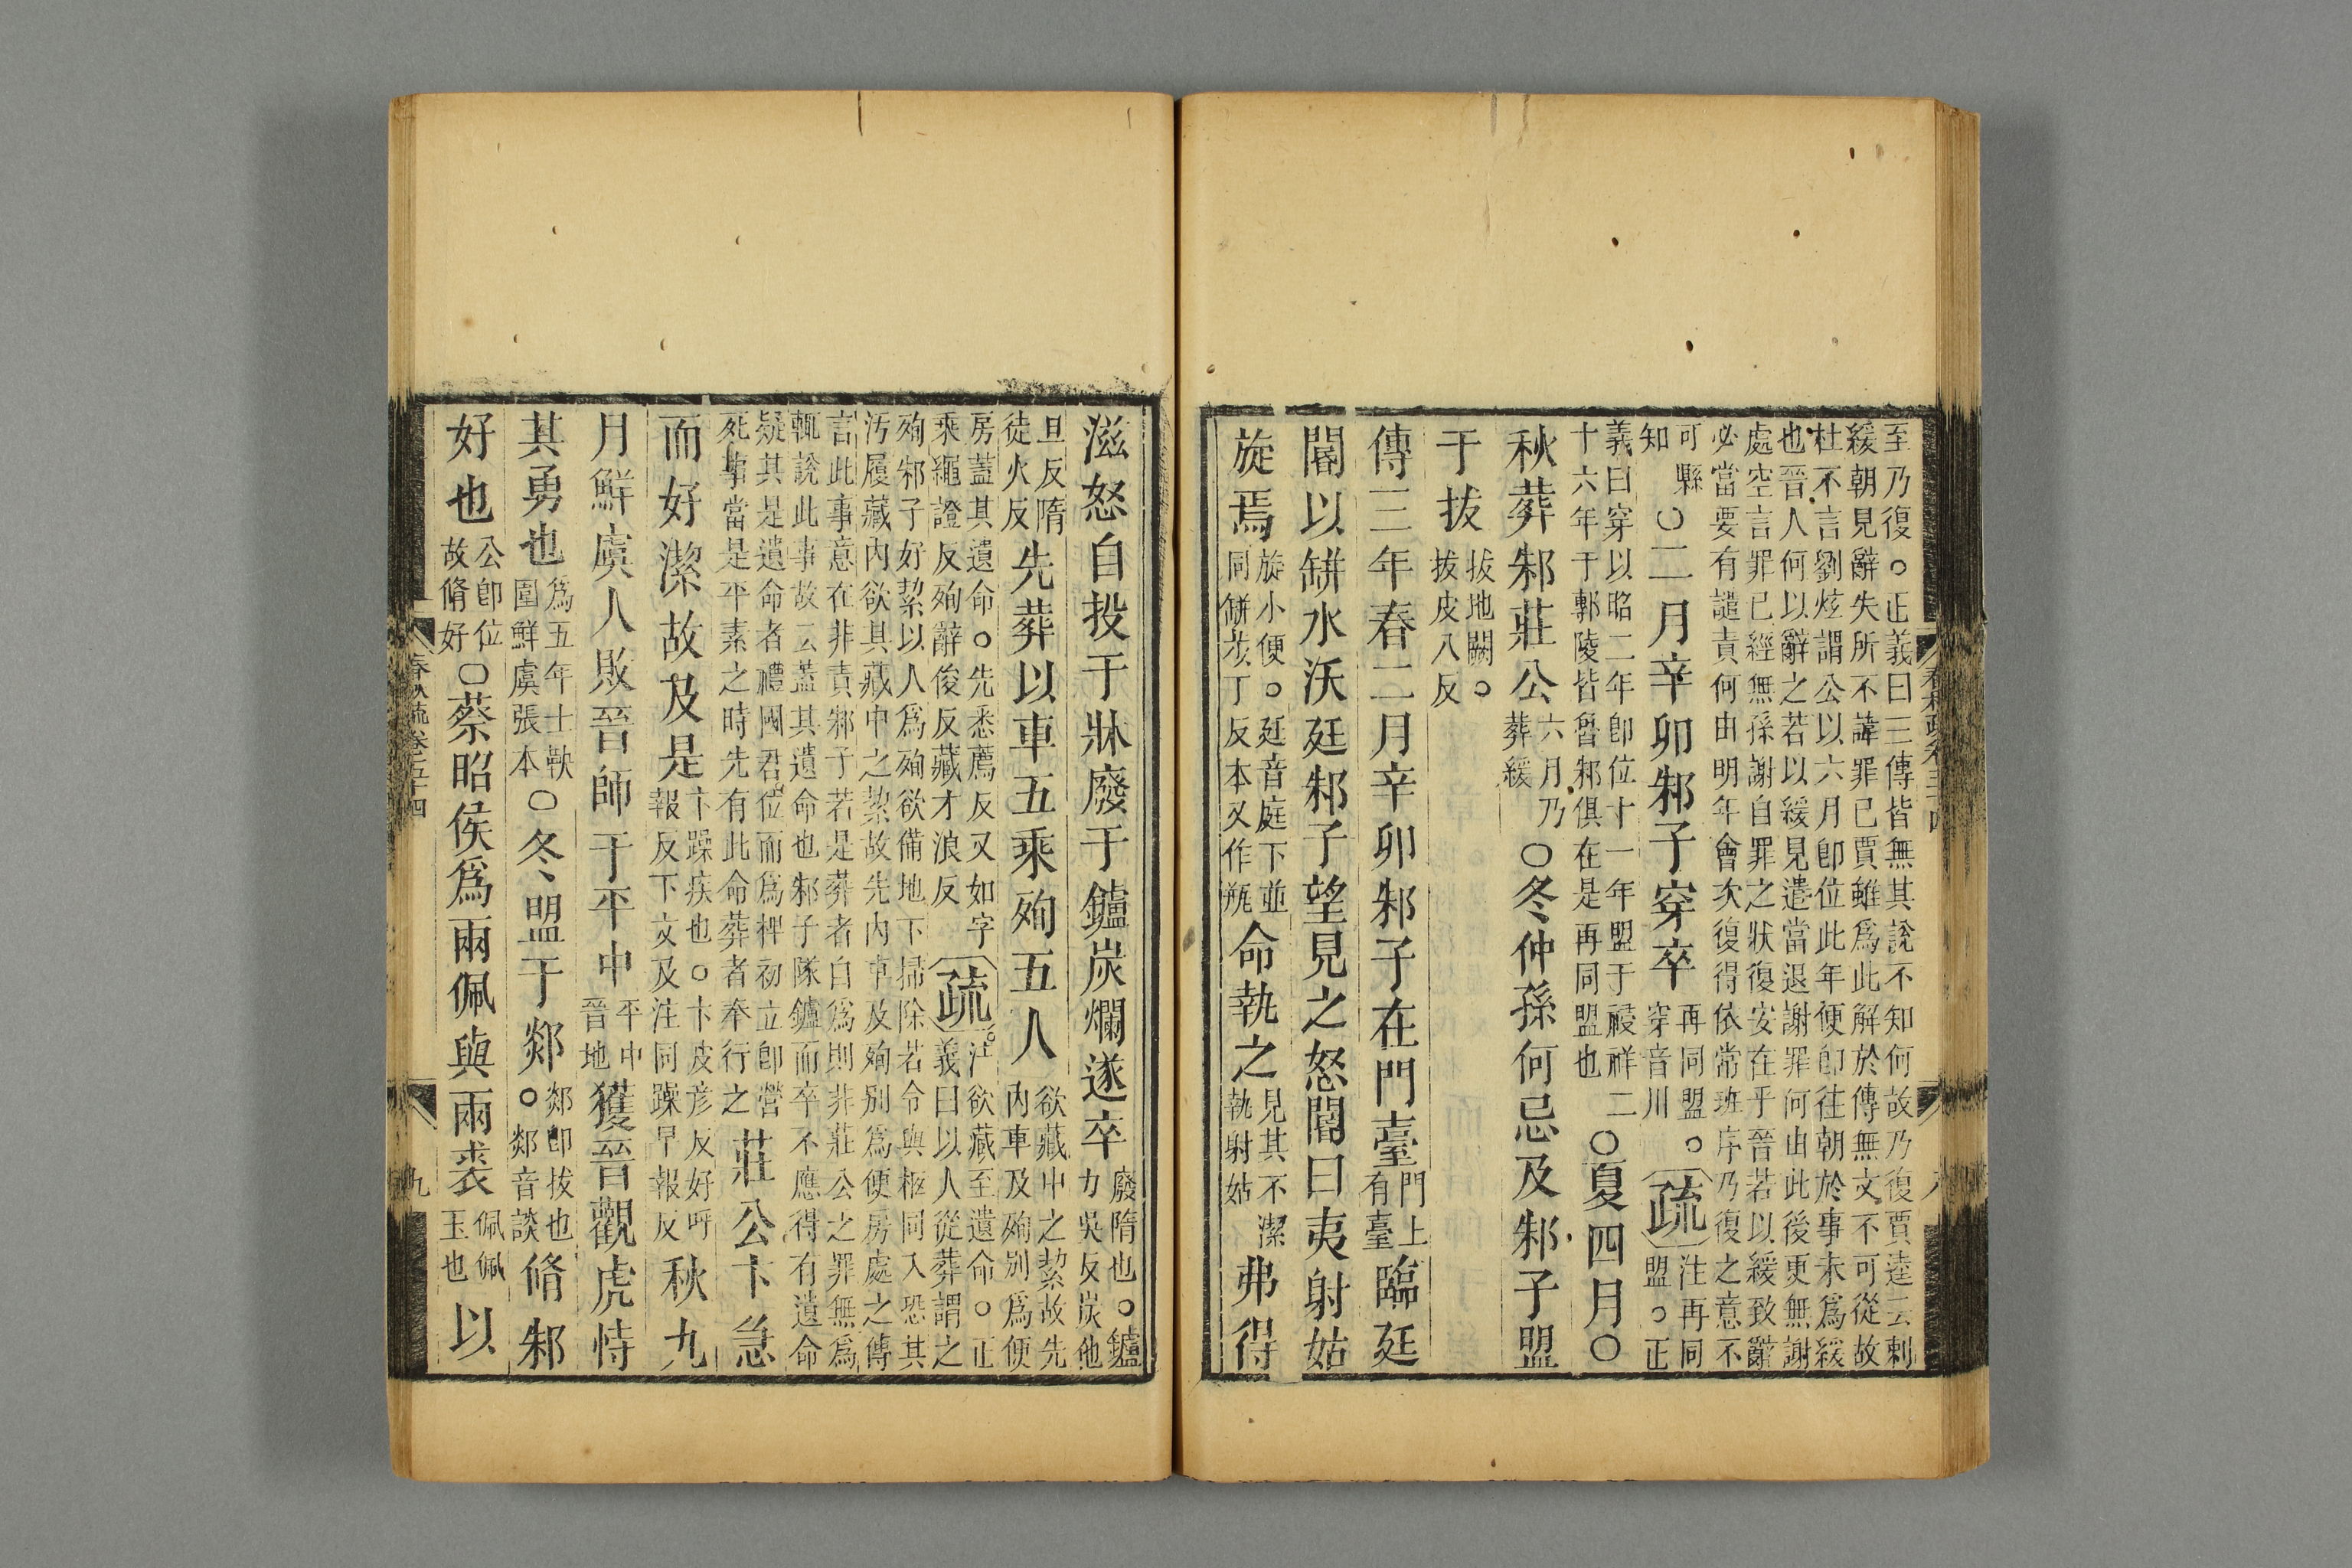 至乃復。正義曰三傳皆無其說不知何故乃復賈逵云刺
緩朝見辭失所不諱罪已賈雖爲此解於傳無文不可從故
杜不言劉炫謂公以六月卽位此年便卽往朝於事未爲緩
也晉人何以辭之若以緩見遣當退謝罪何由此後更無謝
處空言罪已經無孫謝自罪之狀復安在乎晉若以緩致辭
必當要有譴責何由明年會次復得依常班序乃復之意不
可縣
知
○二月辛卯邾子穿卒
再同盟。
穿音川
疏
注再同
盟。正
義曰穿以昭二年卽位十一年盟于祲祥二
十六年于鄟陵皆魯邾俱在是再同盟也
○夏四月○
秋葬邾莊公
六月乃
葬緩
○冬仲孫何忌及邾子盟
于拔
拔地闕。
拔皮八反
傳三年春二月辛卯邾子在門臺
門上
有臺
臨廷
閽以缾水沃廷邾子望見之怒閽曰夷射姑
旋焉
旋小便。廷音庭下並
同缾步丁反本又作瓶
命執之
見其不潔
執射姑
弗得
滋怒自投于牀廢于鑪炭爛遂卒
廢隋也。鑪
力吳反炭他
旦反隋
徒火反
先葬以車五乘殉五人
欲藏中之絜故先
內車及殉別爲便
房蓋其遺命。先悉薦反又如字
乘繩證反殉辭俊反藏才浪反
疏
注欲藏至遺命。正
義曰以人從葬謂之
殉邾子好絜以人爲殉欲備地下掃除若令與柩同入恐其
汚履藏內欲其藏中之絜故先內車及殉別爲便房處之傳
言此事意在非責邾子若是葬者自爲則非莊公之罪無爲
輒說此事故云蓋其遺命也邾子隊鑪而卒不應得有遺命
疑其是遺命者禮國君卽位而爲椑初立卽營
死事當是平素之時先有此命葬者奉行之
莊公卞急
而好潔故及是
卞躁疾也。卞皮彥反好呼
報反下文及注同躁早報反
秋九
月鮮虞人敗晉師于平中
平中
晉地
獲晉觀虎恃
其勇也
爲五年士鞅
圍鮮虞張本
○冬盟于郯
郯卽拔也
。郯音談
脩邾
好也
公卽位
故脩好
○蔡昭侯爲兩佩與兩裘
佩佩
玉也
以
春秋疏卷五十四
八
春秋疏卷五十四
九